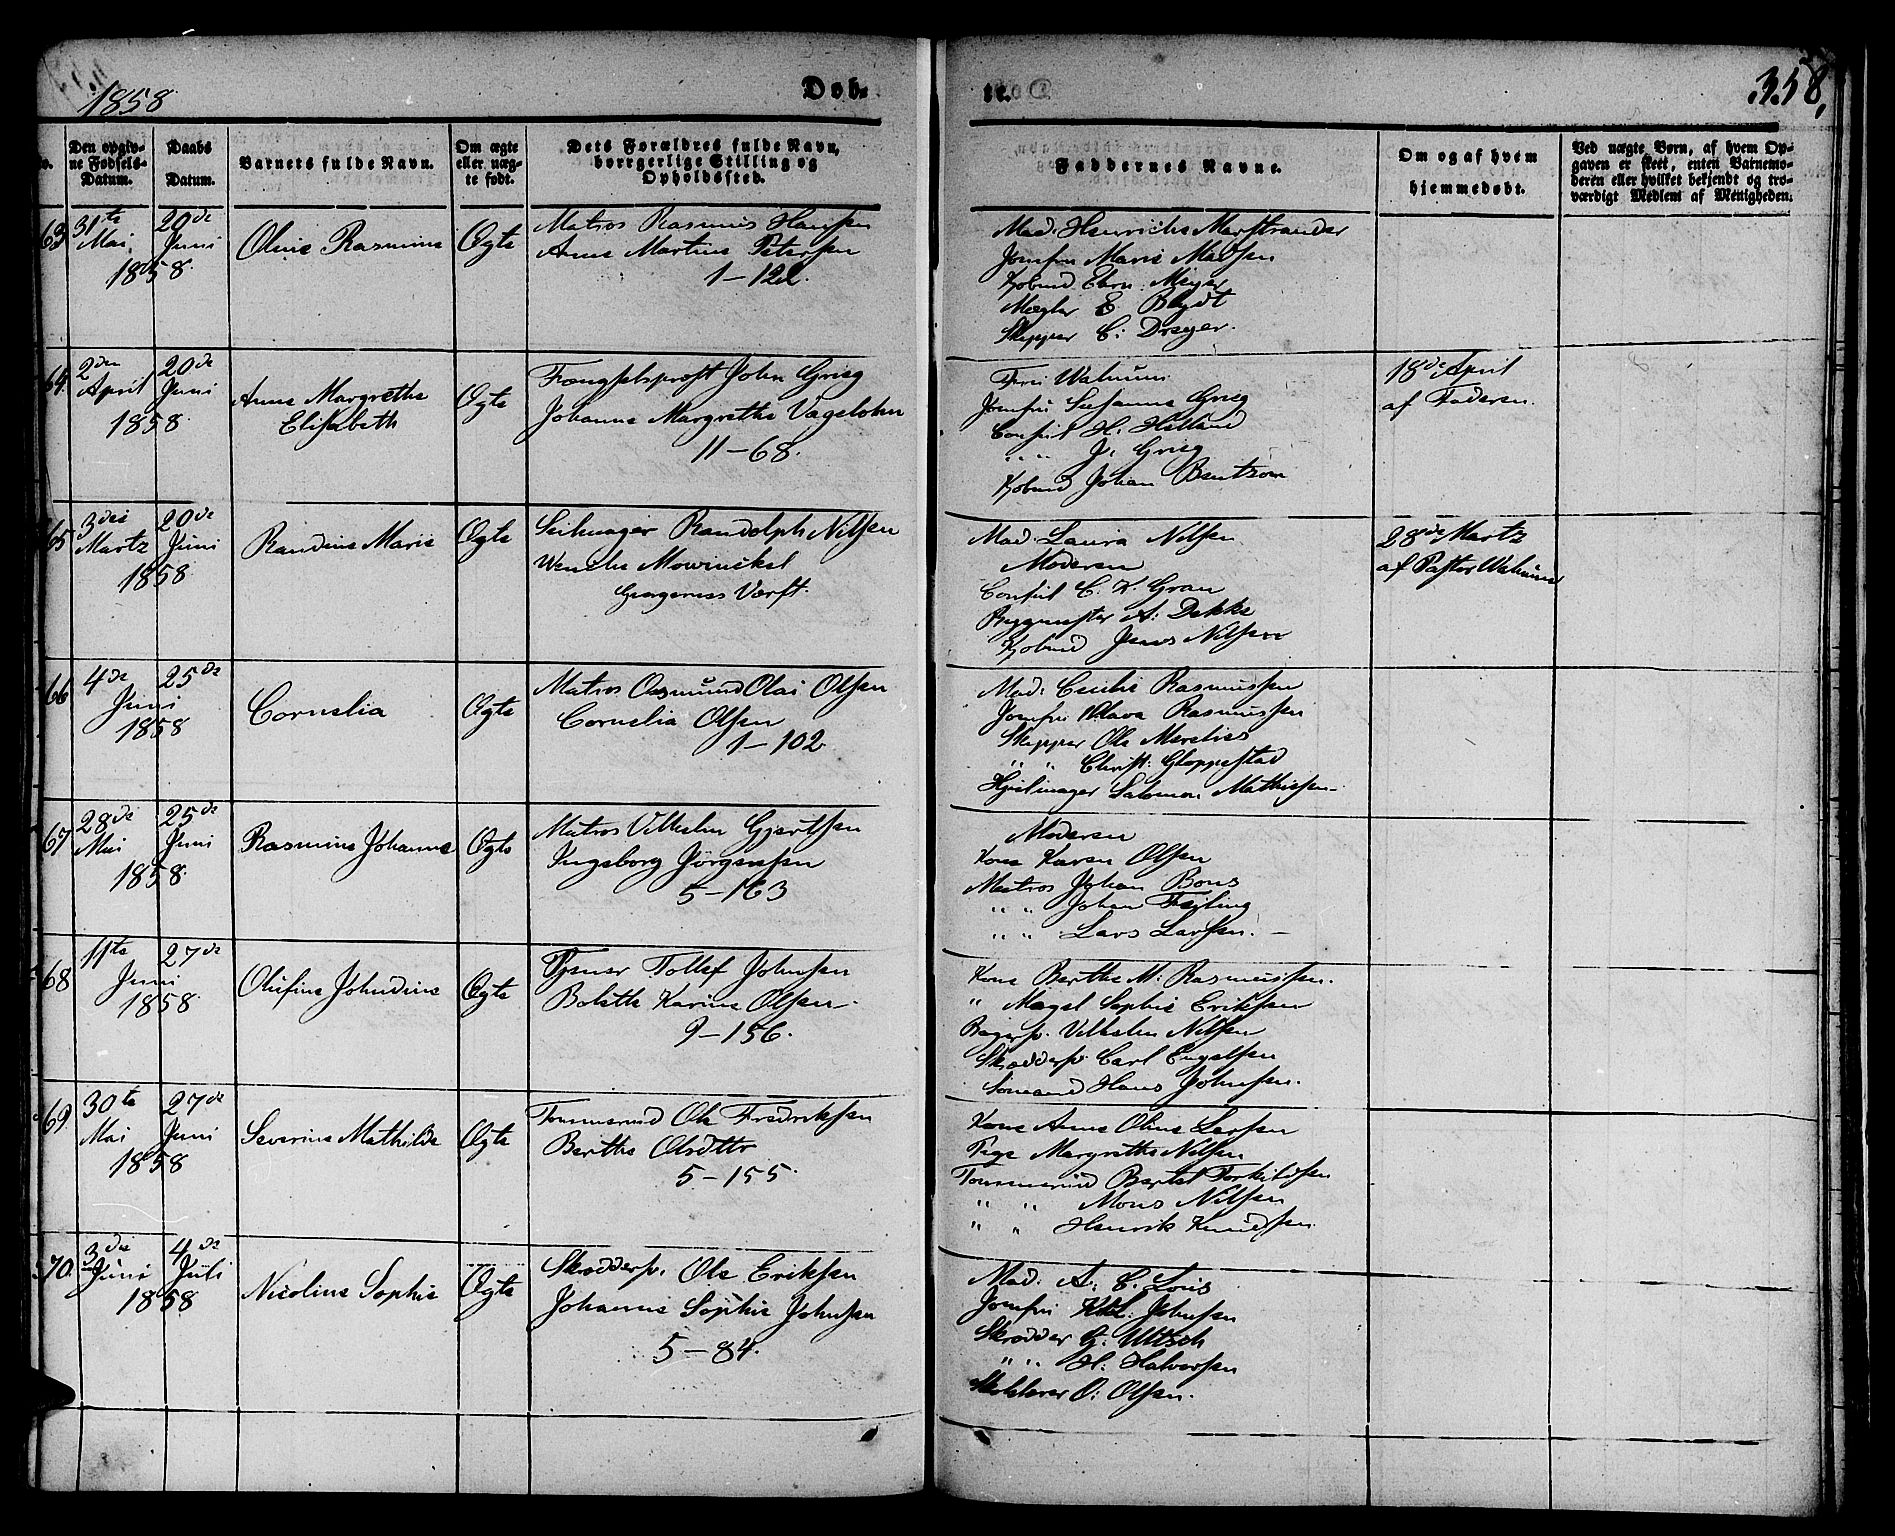 1858
Døb-
te.
358,
No.
Den opgiv-
ne Fødsels-
Datum.
Daabs
Datum.
Barnets fulde Navn.
Om ægte
eller uæg-
te født.
Dets Forældres fulde Navn,
borgerlige Stilling og
Opholdssted.
Faddernes Navne.
Om og af hvem
hjemmedøbt.
Ved uægte Børn, af hvem Op-
gaven er skeet, enten Barnemo-
deren eller hvilket bekjendt og tro-
værdigt Medlem af Menigheden.
63
31te
Mai
1858
20de
Juni
Oline Rasmine
Ægte
Matros Rasmus Hansen
Anne Martine Petersen
1-122.
Mad. Henriche Marstrander
Jomfru Marie Madsen
Kjøbmd Chrn. Meyer
Mægler E. Blydt
Skipper C: Dreyer.
64.
2den
April
1858
20de
Juni
Anne Margrethe
Elisabeth
Ægte
Fængselsprest John Grieg
Johanne Margrethe Vogelohn
11-68.
Fru Walnum
Jomfru Susanne Grieg
Consul H. Helland
" " J. Grieg
Kjøbmd Johan Berntzon
18de April
af Faderen
65
3die
Martz
1858
20de
Juni
Randine Marie
Ægte
Seilmager Randolph Nilsen
Wenche Mowinckel
Georgernes Værft.
Mad. Laura Nilsen
Moderen
Consul C. K. Gran
Byggmester A: Dekke
Kjøbmd Jens Nilsen
28de Martz
af Pastor Walnum
66
4de
Juni
1858
25de
Cornelia
Ægte
Matros Osmund Olai Olsen
Cornelia Olsen
1-102
Mad. Cecilie Rasmussen
Jomfru Olava Rasmussen
Skipper Ole Merelies
" " Christ: Gloppestad
Hjulmager Salomon Mathissen
67
28de
Mai
1858
25de
Juni
Rasmine Johanne
Ægte
Matros Vilhelm Gjertsen
Ingeborg Jørgensen
5-163
Moderen
Kone Karen Olsen
Matros Johan Bons
" " Johan
" " Lars Larsen.
68
11te
Juni
1858
27de
Olufine Johndine
Ægte
Tjener Tollef Johnsen
Bolette Karine Olsen
9-156.
Kone Berthe M: Rasmussen.
" Magel Sophie Eriksen
Bagersv. Vilhelm Nilsen
Skræddersv. Carl Engelsen
Sømand Hans Johnsen.
69
30te
Mai
1858
27de
Juni
Severine Mathilde
Ægte
Tømmermd Ole Fredriksen
Berthe Olsdttr
5-155.
Kone Anne Oline Larsen
Pige Margrethe Nilsen
Tømmermd Bertel Torkildsen
" " Mons Nilsen
" " Henrik Knudsen
70.
3die
Juni
1858
4de
Juli
Nicoline Sophie
Ægte
Skræddersv. Ole Eriksen
Johanne Sophie Johnsen
5-84.
Mad. A. C. Lous
Jomfru Johnsen
Skrædder G. Ultsch
" " H. Halvorsen
O: Olsen.